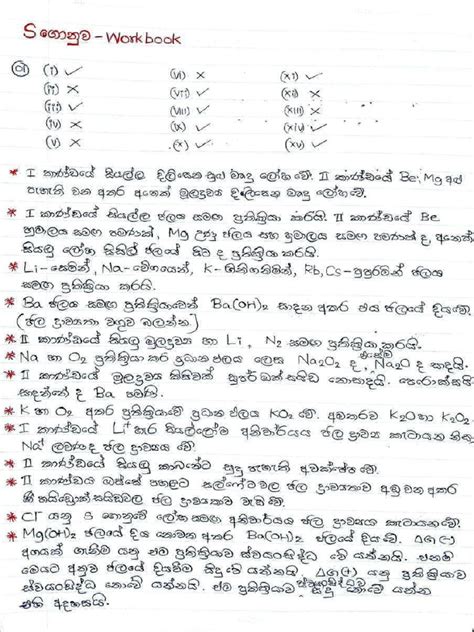 S ගොනුව - Workbook
01 (i) ✓ (vi) × (xi) ✓
(ii) × (vii) ✓ (xii) ×
(iii) ✓ (viii) ✓ (xiii) ×
(iv) × (ix) ✓ (xiv) ✓
(v) × (x) ✓ (xv) ✓
* I කාණ්ඩයේ සියල්ල දිලිසෙන සුළු මෘදු ලෝහ වේ. II කාණ්ඩයේ Be, Mg අළු
පැහැති වන අතර අනෙක් මූලද්‍රව්‍ය දිලිසෙන මෘදු ලෝහවේ.
* I කාණ්ඩයේ සියල්ල ජලය සමඟ ප්‍රතික්‍රියා කරයි. II කාණ්ඩයේ Be
හුමාලය සමඟ පමණක්, Mg උණු ජලය සහ හුමාලය සමඟ පමණක් ද, අනෙක්
සියලු ලෝහ සිසිල් ජලයේ සිට ද ප්‍රතික්‍රියා කරයි.
* Li - සෙමින්, Na - වේගයෙන්, K - ගිනිගනිමින්, Rb, Cs - පුපුරමින් ජලය
සමඟ ප්‍රතික්‍රියා කරයි.
* Ba ජලය සමඟ ප්‍රතික්‍රියාවෙන් Ba(OH)₂ සාදන අතර එය ජලයේ දියවේ.
(ජල ද්‍රාව්‍යතා වගුව බලන්න.)
* II කාණ්ඩයේ සියලු මූලද්‍රව්‍ය හා Li, N₂ සමඟ ප්‍රතික්‍රියා කරයි.
* Na හා O₂ ප්‍රතික්‍රියා කර ප්‍රධාන ඵලය ලෙස Na₂O₂ ද, Na₂O ද සාදයි.
* II කාණ්ඩයේ මූලද්‍රව්‍ය කිසිවක් සුපර් ඔක්සයිඩ නොසාදයි. පෙරොක්සයිඩ
සාදන්නේ ද Ba පමණි.
* K හා O₂ අතර ප්‍රතික්‍රියාවේ ප්‍රධාන ඵලය KO₂ වේ. අමතරව K₂O හා K₂O₂
* I කාණ්ඩයේ Li⁺ හැර සියල්ලෝම අනිවාර්යය ජල ද්‍රාව්‍ය කැටායන නිසා
Na⁺ ලවණද ජල ද්‍රාව්‍ය වේ.
* II කාණ්ඩයේ සියලු කාබනේට සුදු පැහැති අවක්ෂේප වේ.
* II කාණ්ඩය ඔස්සේ පහළට සල්ෆේට්වල ජල ද්‍රාව්‍යතාව අඩු වන අතර
හයිඩ්‍රොක්සයිඩවල ජල ද්‍රාව්‍යතාව වැඩි වේ.
* Cl⁻ යනු s ගොනුවේ ලෝහ සමඟ අනිවාර්යය ජල ද්‍රාව්‍ය කැටායන වේ.
* Mg(OH)₂ ජලයේ දිය නොවන අතර Ba(OH)₂ ජලයේ දියවේ. ΔG (+)
අගයක් ගැනීම යනු එම ප්‍රතික්‍රියාව ස්වයංසිද්ධ නොවේ යන්නයි. එනම්
මෙයට අනුව ජලයේ දියවීම සිදු වේ යන්නයි. ΔG (+) යනු ප්‍රතික්‍රියාව
ස්වයංසිද්ධ නොවේ යන්නයි. එම ප්‍රතික්‍රියාව ස්වයංසිද්ධව සිදු නොවේ යන්න
එහි අදහසයි.